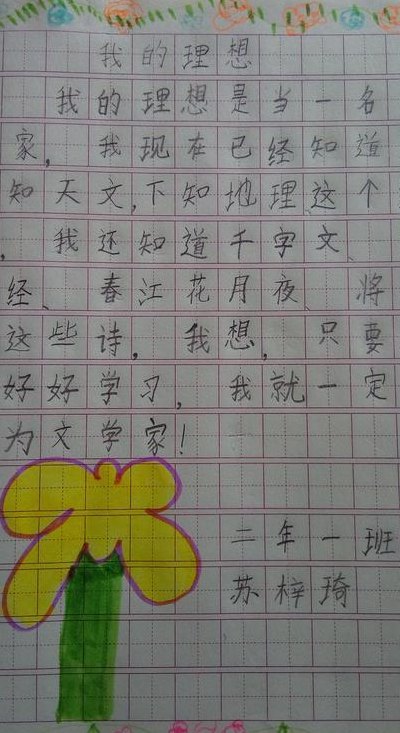 我的理想
我的理想是当一名
家，我现在已经知道
知天文，下知地理这个
，我还知道千字文、
经、春江花月夜、将
这些诗，我想，只要
好好学习，我就一定
为文学家！
二年一班
苏梓琦